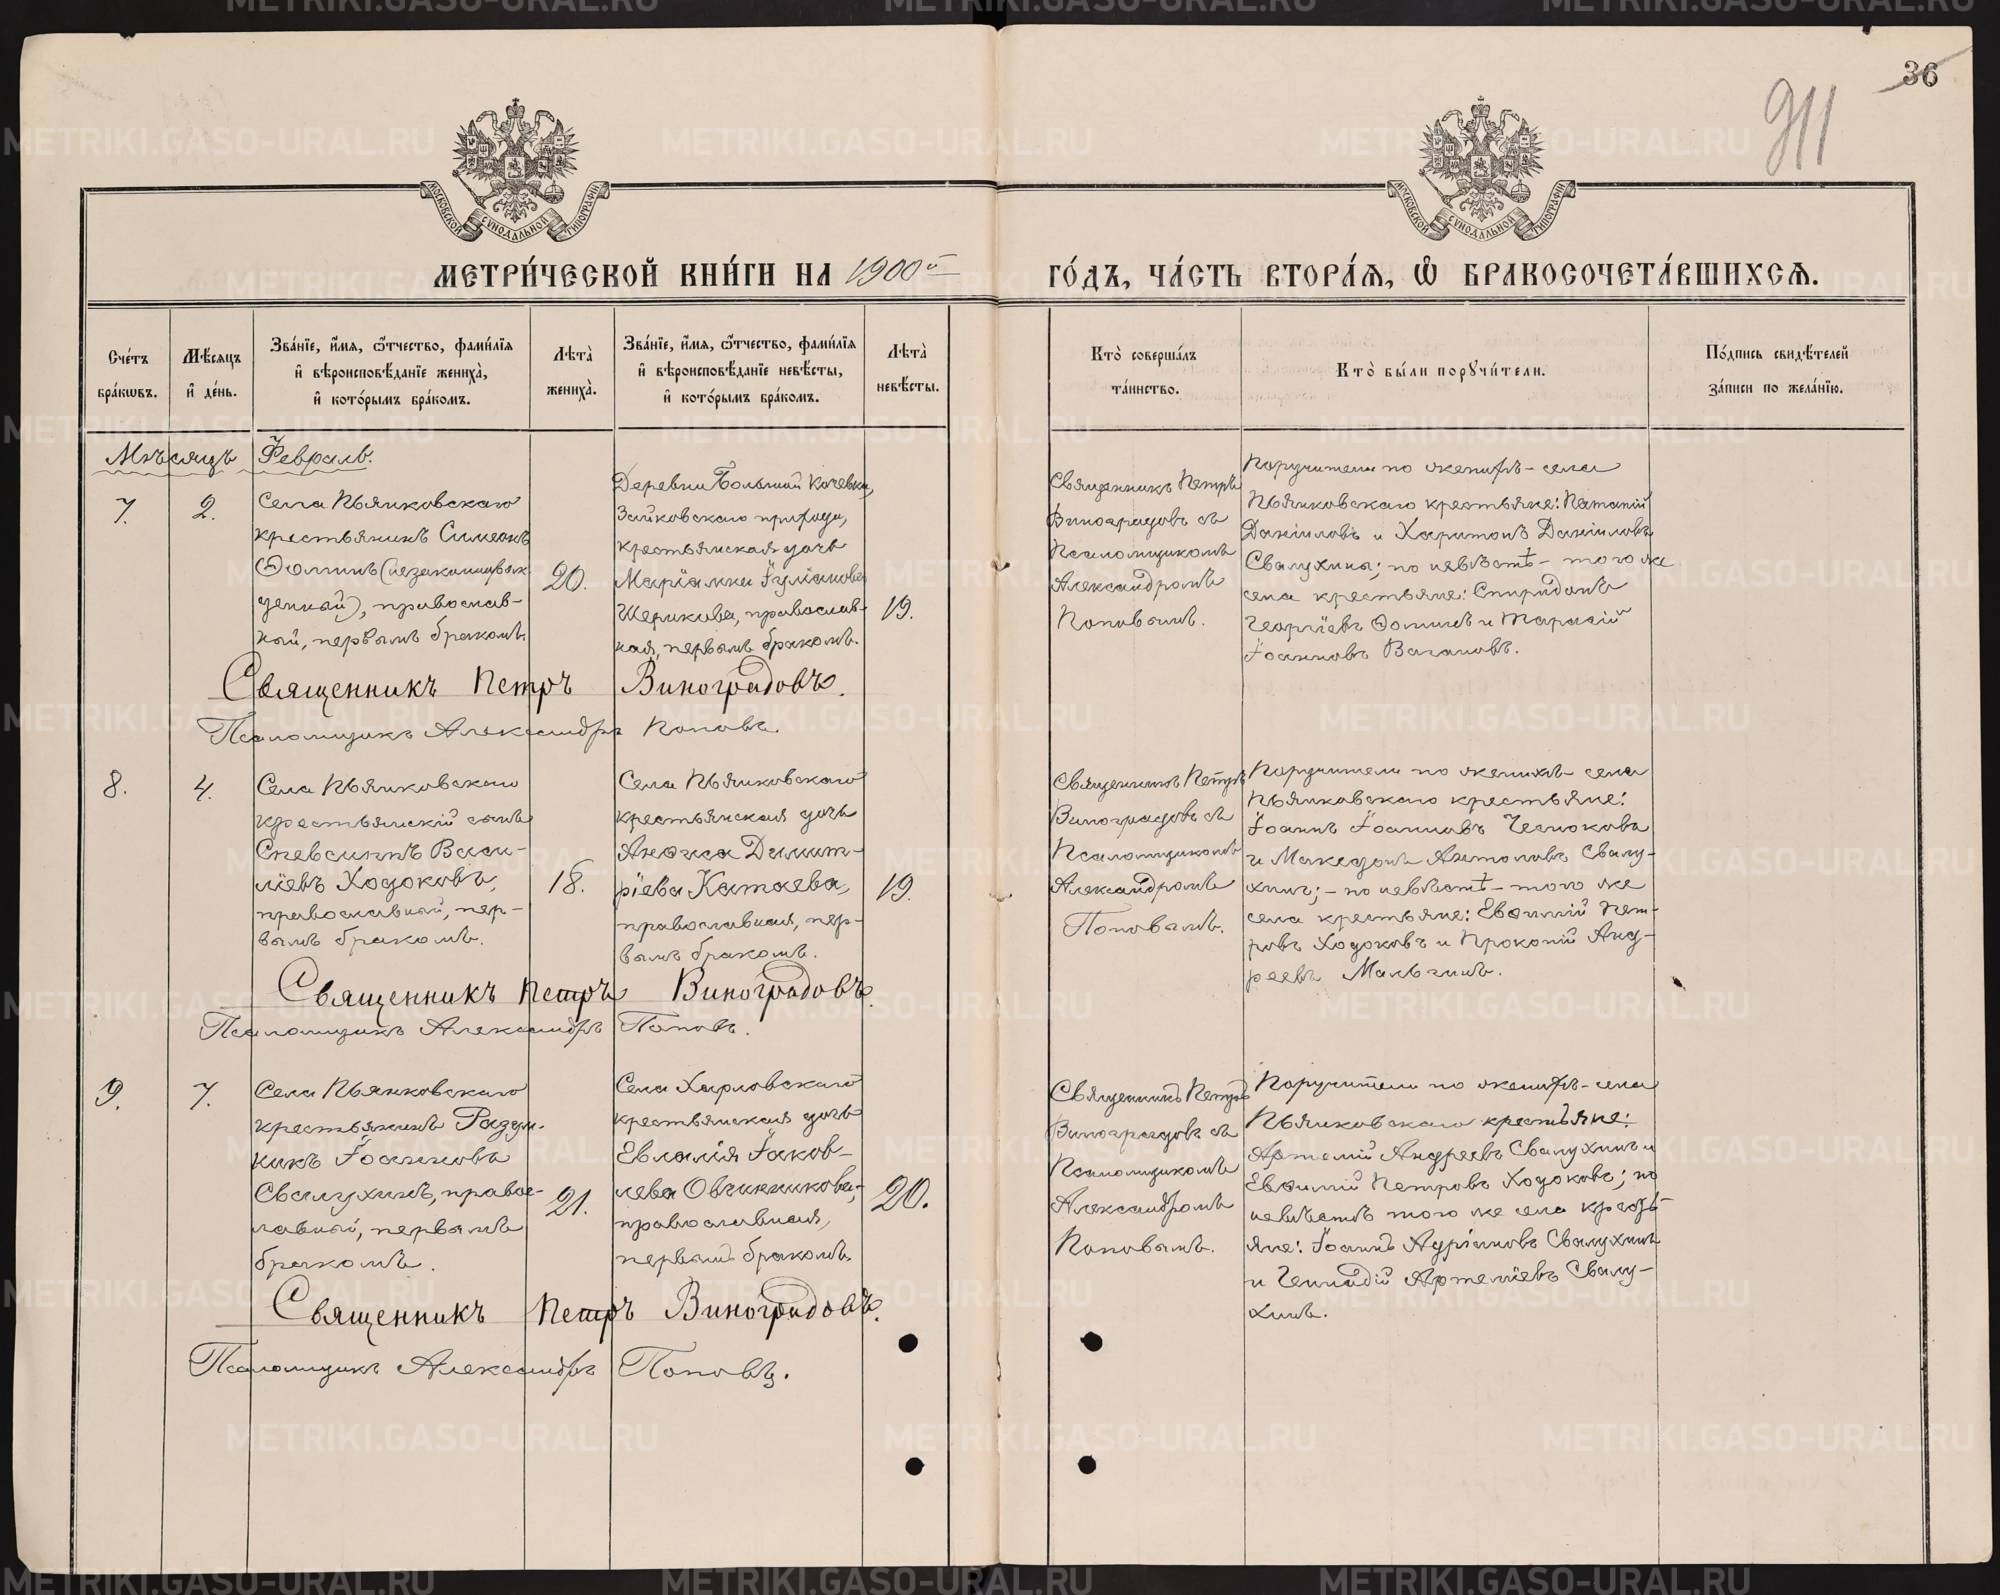 36
911
МОСКОВСКОЙ СѴНОДАЛЬНОЙ ТИПОГРАФІИ
МОСКОВСКОЙ СѴНОДАЛЬНОЙ ТИПОГРАФІИ
МЕТРИ́ЧЕСКОЙ КНИ́ГИ НА 1900й
ГО́ДЪ, ЧА́СТЬ ВТОРА́Я, Ѽ БРАКОСОЧЕТА́ВШИХСЯ.
Сче́тъ бра́кѡвъ.
Мѣ́сяцъ и҆ де́нь.
Зва́нїе, и҆́мя, ѻ҆́тчество, фами́лїя и҆ вѣроисповѣ́данїе жениха̀, и҆ кото́рымъ бра́комъ.
Лѣта̀ жениха̀.
Зва́нїе, и҆́мя, ѻ҆́тчество, фами́лїя и҆ вѣроисповѣ́данїе невѣ́сты, и҆ кото́рымъ бра́комъ.
Лѣта̀ невѣ́сты.
Кто̀ соверша́лъ та́инство.
Кто̀ бы́ли порꙋчи́тели.
По́дпись свидѣ́телей за́писи по жела́нїю.
Мѣсяцъ Февраль.
7.
2.
Села Пьянковскаго
крестьянинъ Симеонъ
Ѳоминъ (незаконнорож
денный), православ-
ный, первымъ бракомъ.
20.
Деревни Большой Кочевки,
Зайковскаго прихода,
крестьянская дочь
Маріамна Іуліанова
Шерикова, православ-
ная, первымъ бракомъ.
19.
Священникъ Петръ
Виноградовъ съ
Псаломщикомъ
Александромъ
Поповымъ.
Поручители по женихѣ – села
Пьянковскаго крестьяне: Патапій
Даніиловъ и Харитонъ Даніиловъ
Свалухины; по невѣстѣ – того же
села крестьяне: Спиридонъ
Георгіевъ Ѳоминъ и Тарасій
Іоанновъ Вагановъ.
Священникъ Петръ Виноградовъ.
Псаломщикъ Александръ Поповъ.
8.
4.
Села Пьянковскаго
крестьянскій сынъ
Спевсиппъ Васи-
ліевъ Ходоковъ,
православный, пер-
вымъ бракомъ.
18.
Села Пьянковскаго
крестьянская дочь
Анѳиса Димит-
ріева Катаева,
православная, пер-
вымъ бракомъ.
19.
Священникъ Петръ
Виноградовъ съ
Псаломщикомъ
Александромъ
Поповымъ.
Поручители по женихѣ – села
Пьянковскаго крестьяне:
Іоаннъ Іоанновъ Чесноковъ
и Македонъ Антоновъ Свалу-
хинъ; – по невѣстѣ – того же
села крестьяне: Евѳимій Пет-
ровъ Ходоковъ и Прокопій Анд-
реевъ Мальгинъ.
Священникъ Петръ Виноградовъ.
Псаломщикъ Александръ Поповъ.
9.
7.
Села Пьянковскаго
крестьянинъ Разум-
никъ Іоанновъ
Свалухинъ, правос-
лавный, первымъ
бракомъ.
21.
Села Харловскаго
крестьянская дочь
Евлалія Іаков-
лева Овчинникова,
православная,
первымъ бракомъ.
20.
Священникъ Петръ
Виноградовъ съ
Псаломщикомъ
Александромъ
Поповымъ.
Поручители по женихѣ – села
Пьянковскаго крестьяне:
Артемій Андреевъ Свалухинъ и
Евѳимій Петровъ Ходоковъ; по
невѣстѣ того же села кресть-
яне: Іоаннъ Адріановъ Свалухинъ
и Геннадій Артеміевъ Свалу-
хинъ.
Священникъ Петръ Виноградовъ.
Псаломщикъ Александръ Поповъ.
METRIKI.GASO-URAL.RU